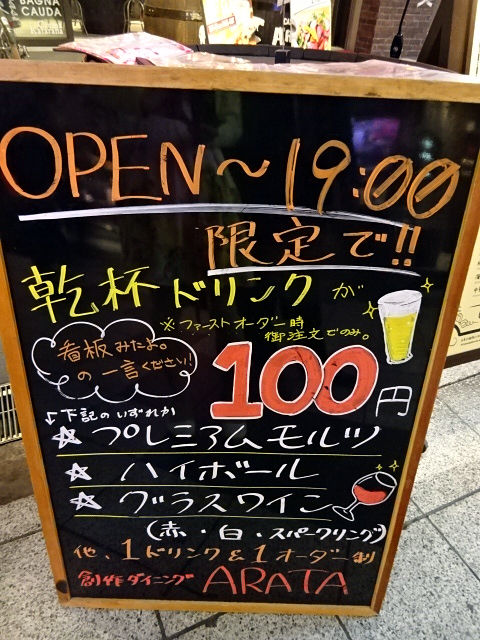 BAGNA
CAUDA
OPEN～19:00
限定で!!
乾杯ドリンクが
※ファーストオーダー時
御注文でのみ。
看板みたよ。
の一言ください!
100円
↓下記のいずれか
☆プレミアムモルツ
☆ハイボール
☆グラスワイン
(赤・白・スパークリング)
他、1ドリンク&1オーダー制
創作ダイニング ARATA